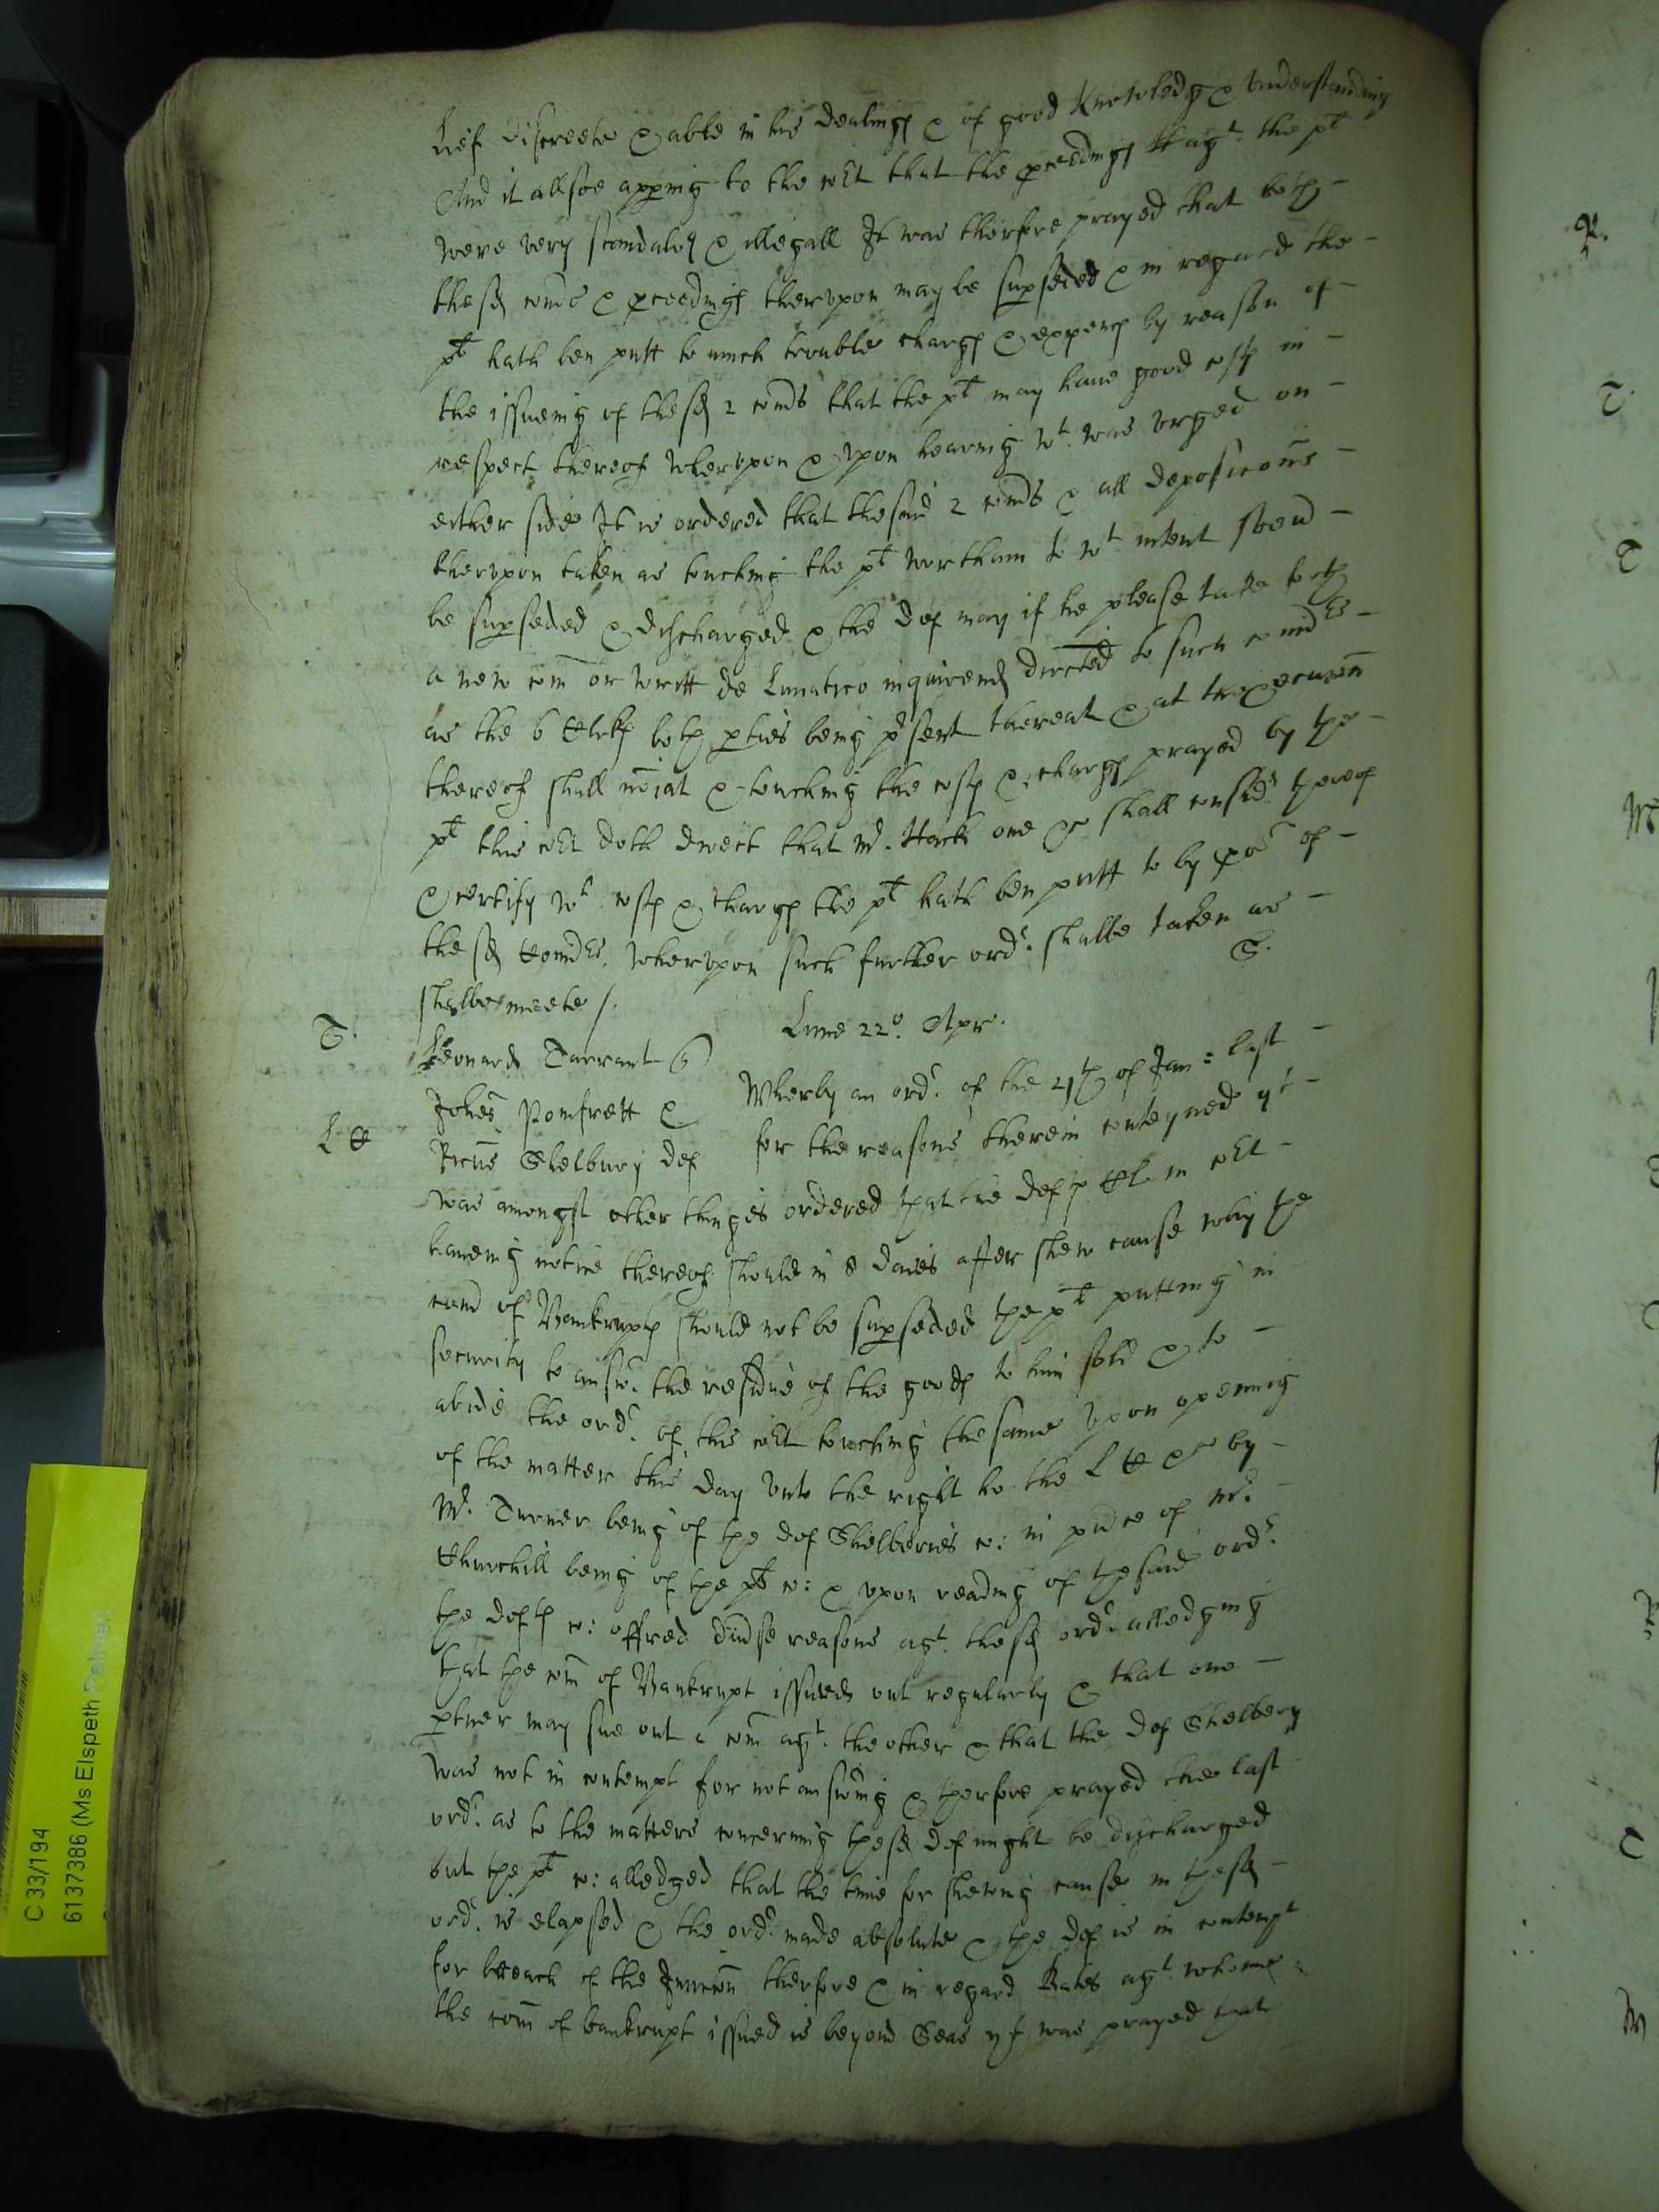 discreete & able in his dealings & of good Knowledg & understanding
And it allsoe apping to the cot that the pceedings agt. the plt
were very scandalos & illegall It was therfore prayed that both
the sd comds & pceedings therupon may be supseded & in regard the
plt hath ben putt to much trouble charges & expences by reason of
the issueing of the sd 2 comds that the plt may have good costs in
respect thereof wherupon & upon hearing wt. was urged on
either side It is ordered that the said 2 comds & all deposicons
therupon taken as touching the plt Wortham to wt. intent soever
be supseded & discharged & the def may if he please take forth
a new com or writt de Lunatico inquirend directed to such comdrs
as the 6 Clks both pties being psent thereat & at the execucon
thereof shall noiat & touching the costs & charges prayed by the
plt this cot doth direct that Mr. Hack one &c shall consider thereof
& certify wt. costs & charges the plt hath ben putt to by of
the sd Comdrs. wherupon such further ordr. shalbe taken as
shalbe meete /.
S.
T. Lune 22o. Apr.
Leonard Tarrant
Johes Pomfrett &
Ricus Shelbury def
L C
Wherby an ordr. of the 21th of Jan: last
for the reasons therein conteyned yt
was amongst other thinges ordered that the def Cl in cot
haveing notice thereof should in 8 daies after shew cause why the
comd of Bankrupts should not be supseded the plt putting in
security to answ. the residue of the goods to him sold & to
abide the ordr. of this cot touching the same upon opening
of the matter this day unto the right ho the L C &c by
Mr. Turner being of the def Shelberies c: in psence of Mr.
Churchill being of the plt c: & upon reading of the said ordr.
the defts c: offred divse reasons agt. the sd ordr. alledging
that the com of Bankrupt issued out regularly & that one
ptner may sue out a com agt. the other & that the def Shelbery
was not in contempt for not answing & therfore prayed the last
ordr. as to the matters concerning the sd def might be discharged
but the plt c: alledged that the time for shewing cause in the sd
ordr. is elapsed & the ordr. made absolute & the def is in contempt
for breach of the Iniunccon therfore & in regard Bates agt. whome
the com of bankrupt issued is beyond Seas yt was prayed that
C 33/194
6137386 (Ms Elspeth Palmer)